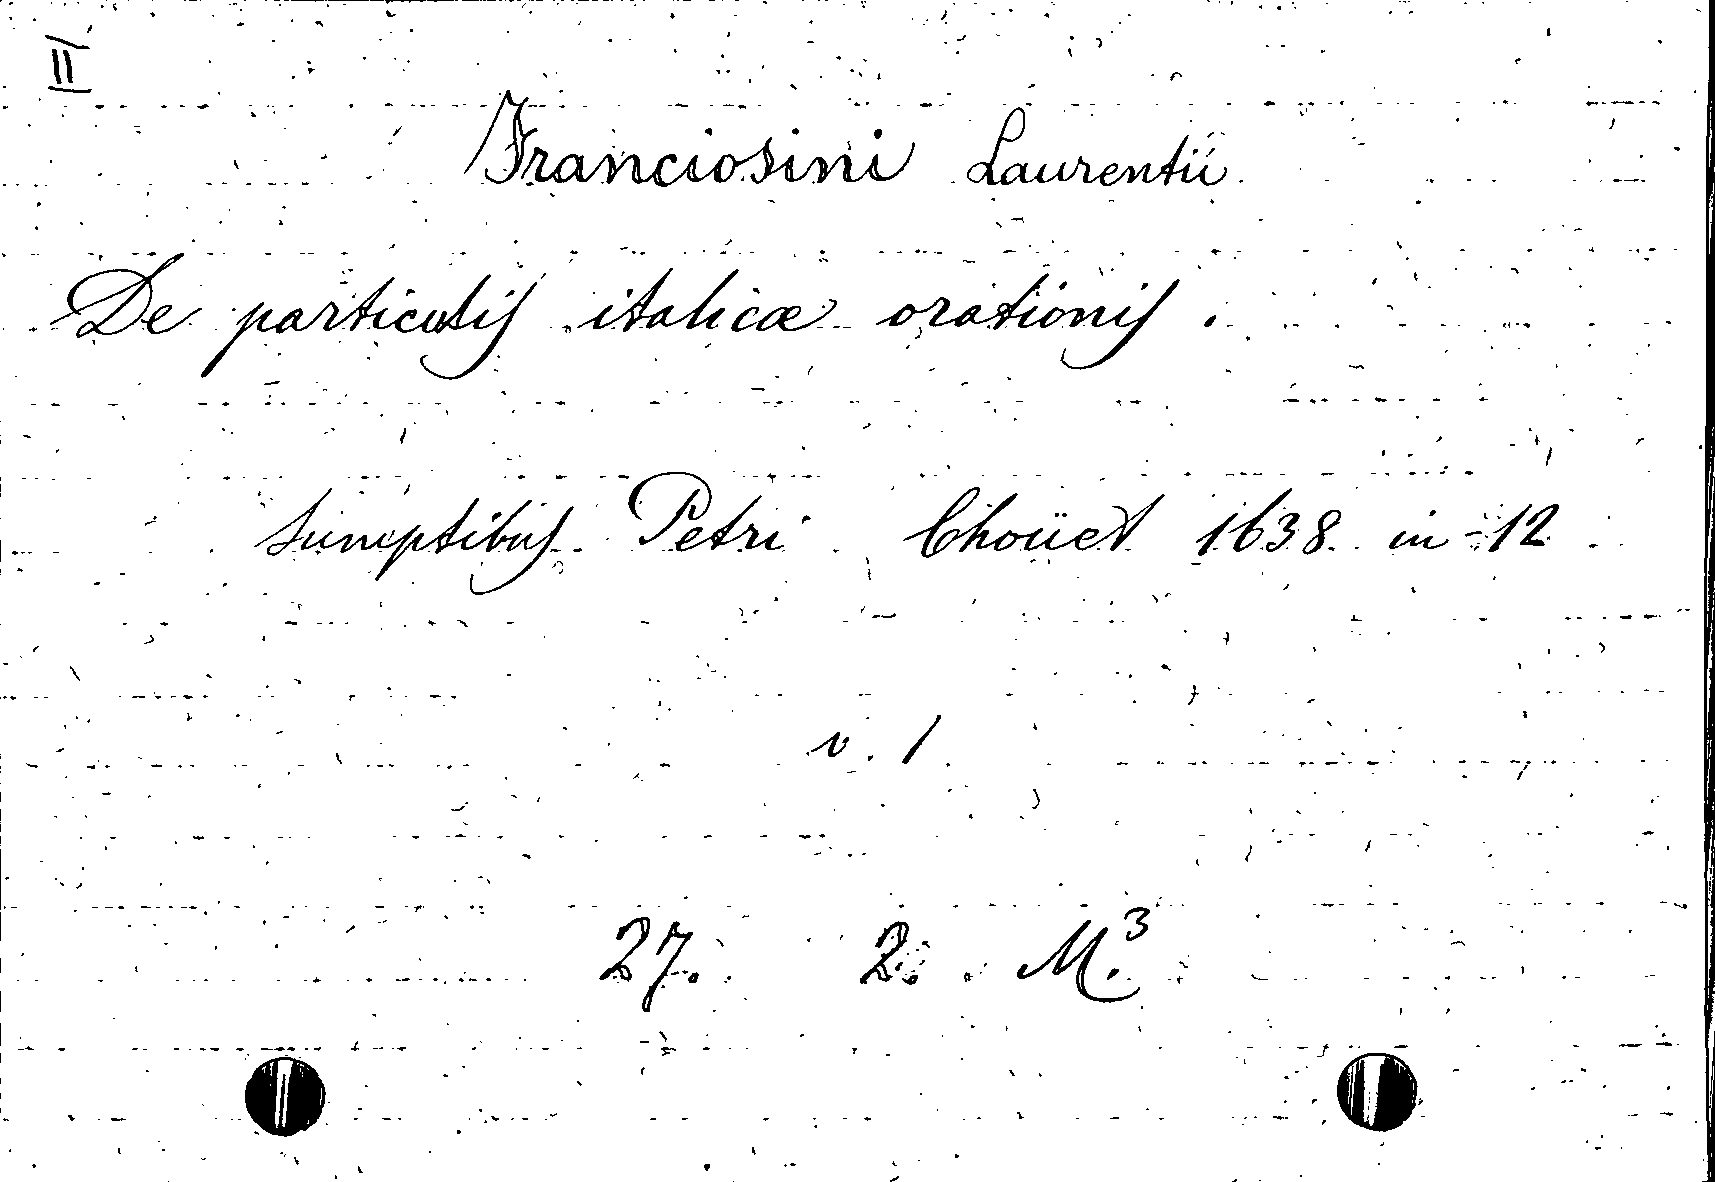 II
Franciosini Laurentii
De particulis italicæ orationis.
sumptibus Petri Choüet 1638 in-12
v. 1
27. 2. M.3